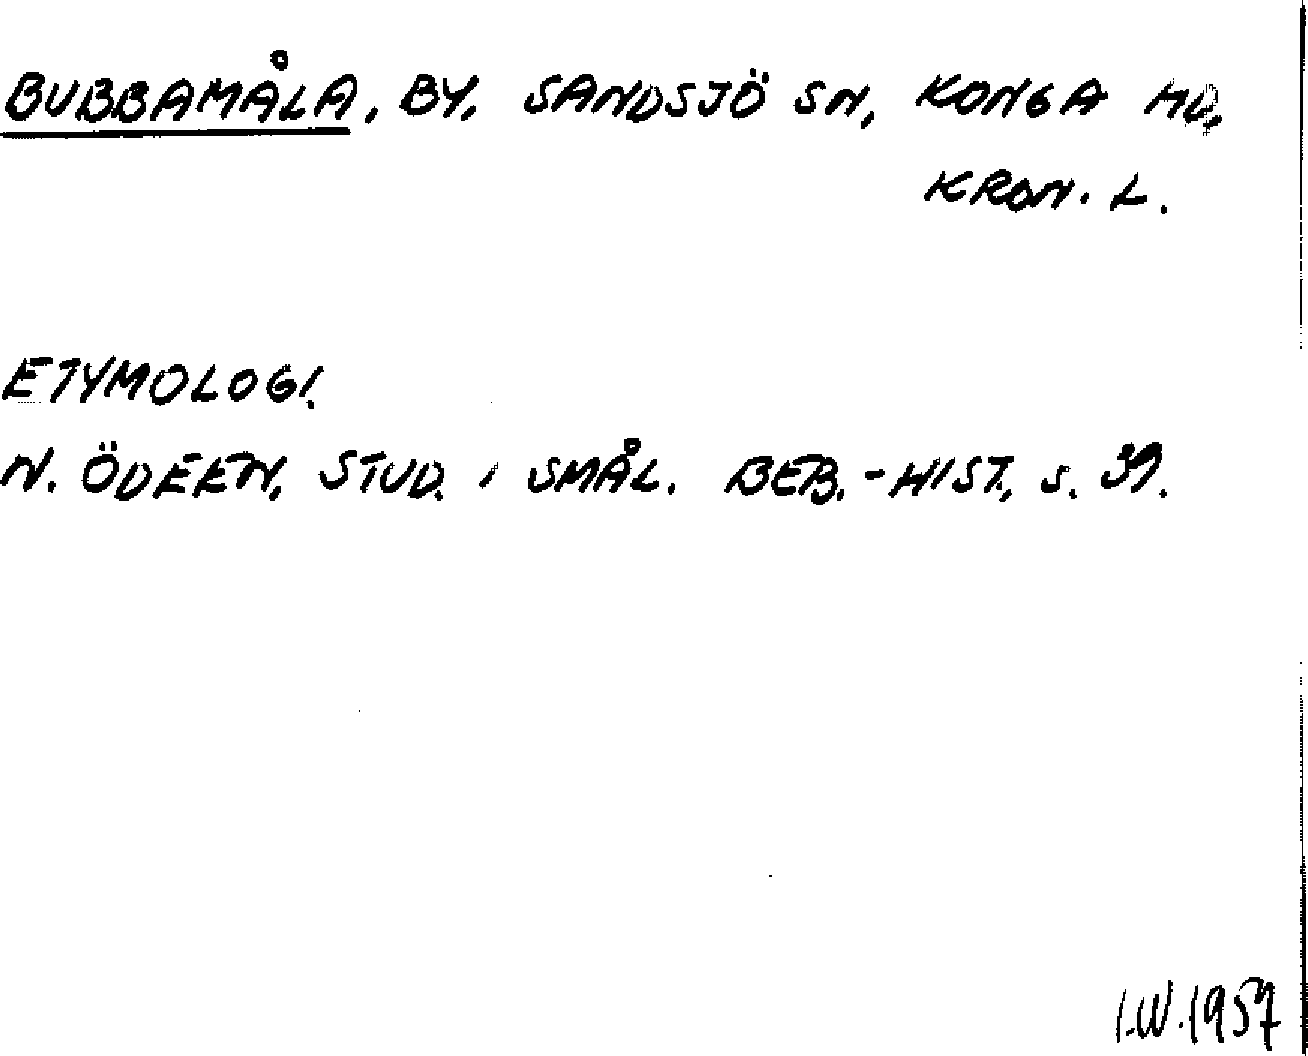 BUBBAMÅLA, BY, SANDSJÖ SN, KONGA HD,
KRON. L.
ETYMOLOGI.
N. ÖDEEN, STUD. I SMÅL. BEB.-HIST., S. 39.
I.W. 1957